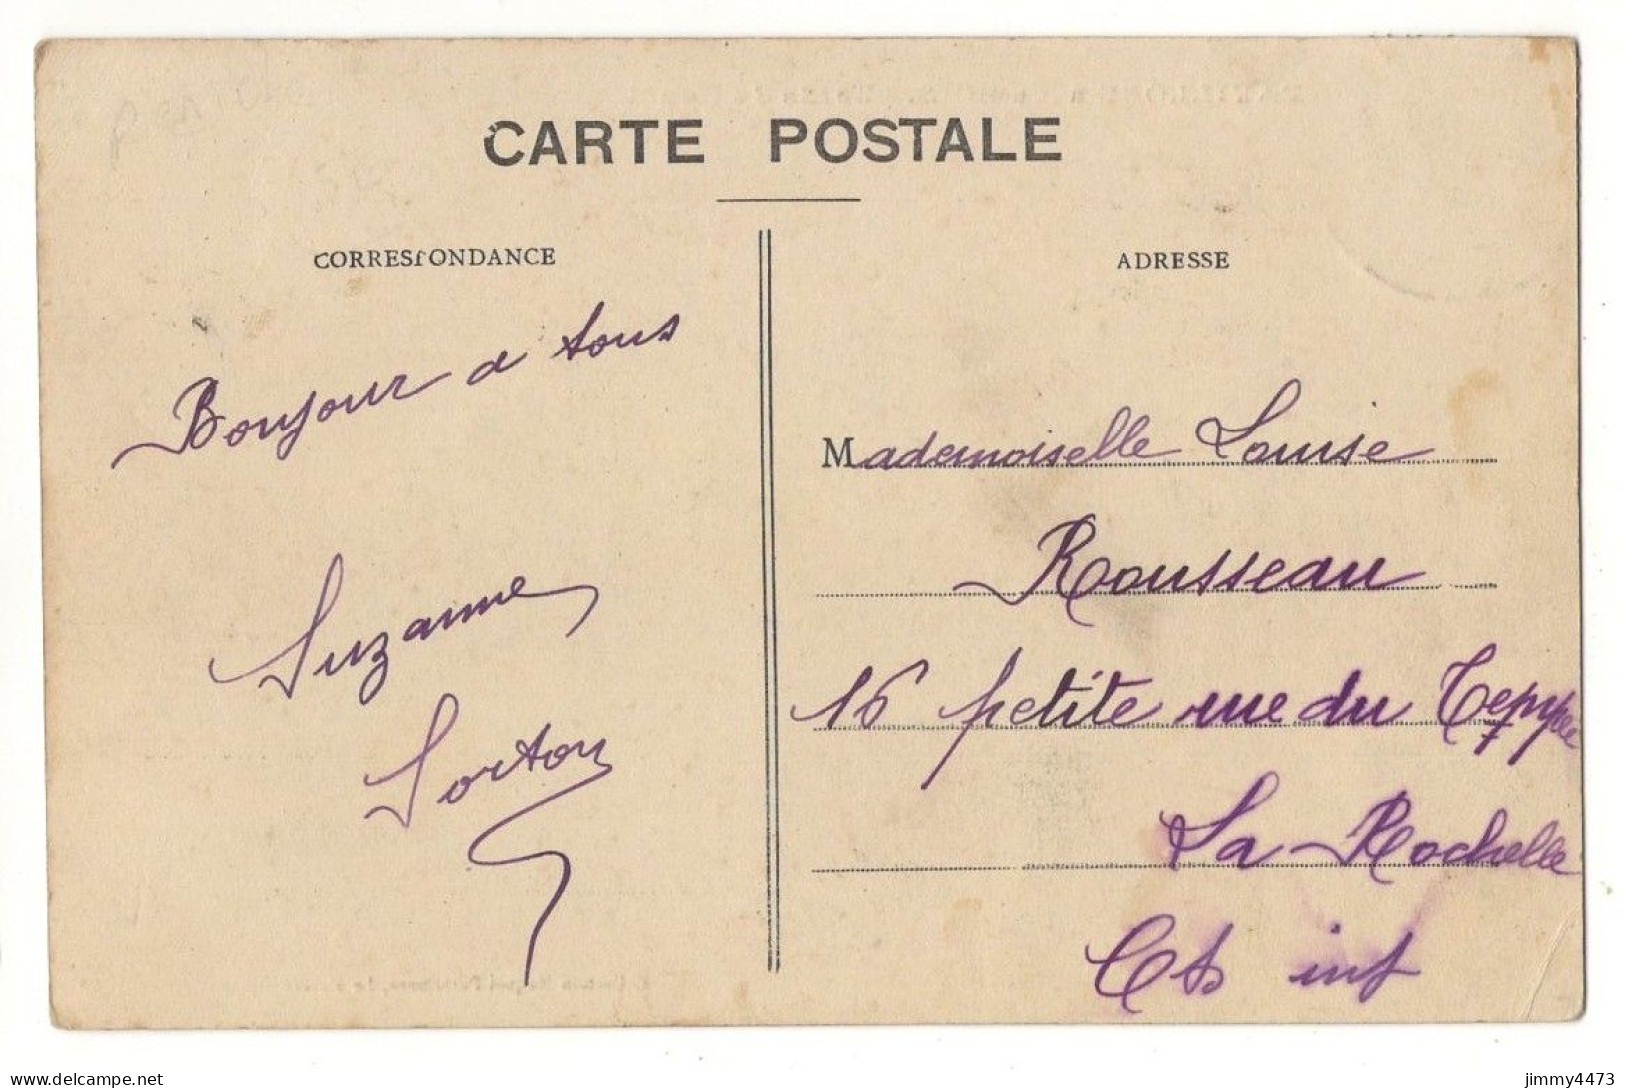 CARTE POSTALE
CORRESPONDANCE
Bonjour a tous
Suzanne
Sorton
ADRESSE
Mademoiselle Louise
Rousseau
16 petite rue du Temple
La Rochelle
Ch inf
www.delcampe.net
jimmy4473